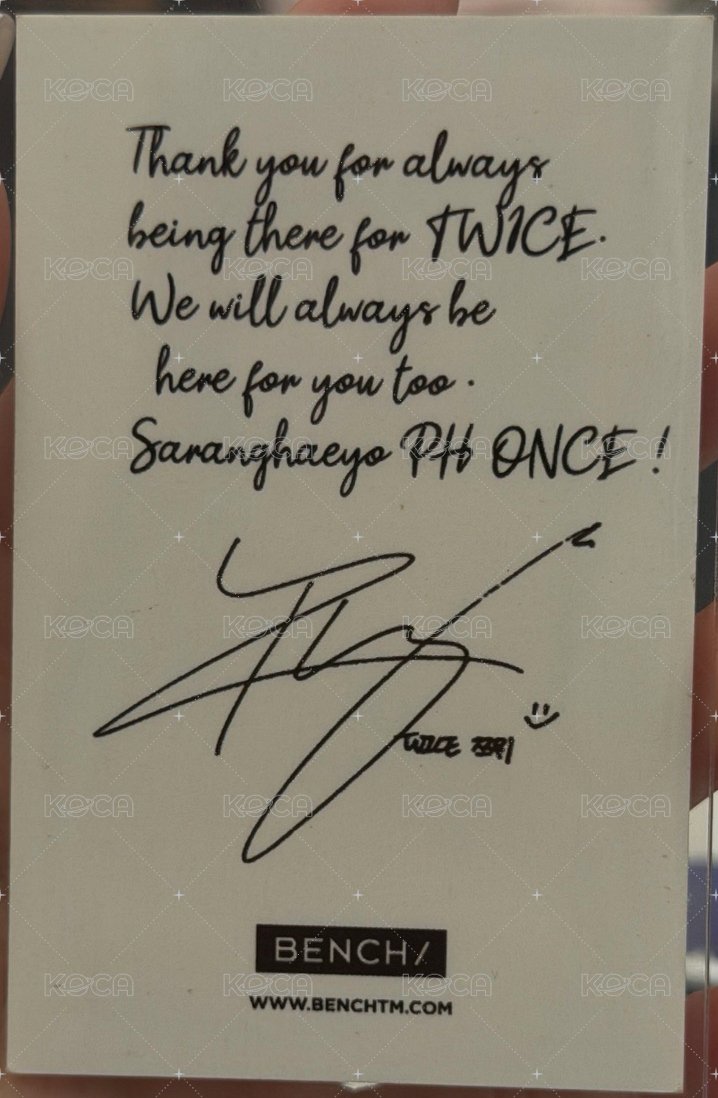 KOCA KOCA KOCA KOCA
Thank you for always
being there for TWICE.
KOCA KOCA KOCA KOCA
We will always be
here for you too.
Saranghaeyo PH ONCE!
KOCA KOCA KOCA KOCA
KOCA KOCA KOCA KOCA
TWICE
KOCA KOCA KOCA KOCA
BENCH/
KOCA KOCA KOCA KOCA
WWW.BENCHTM.COM